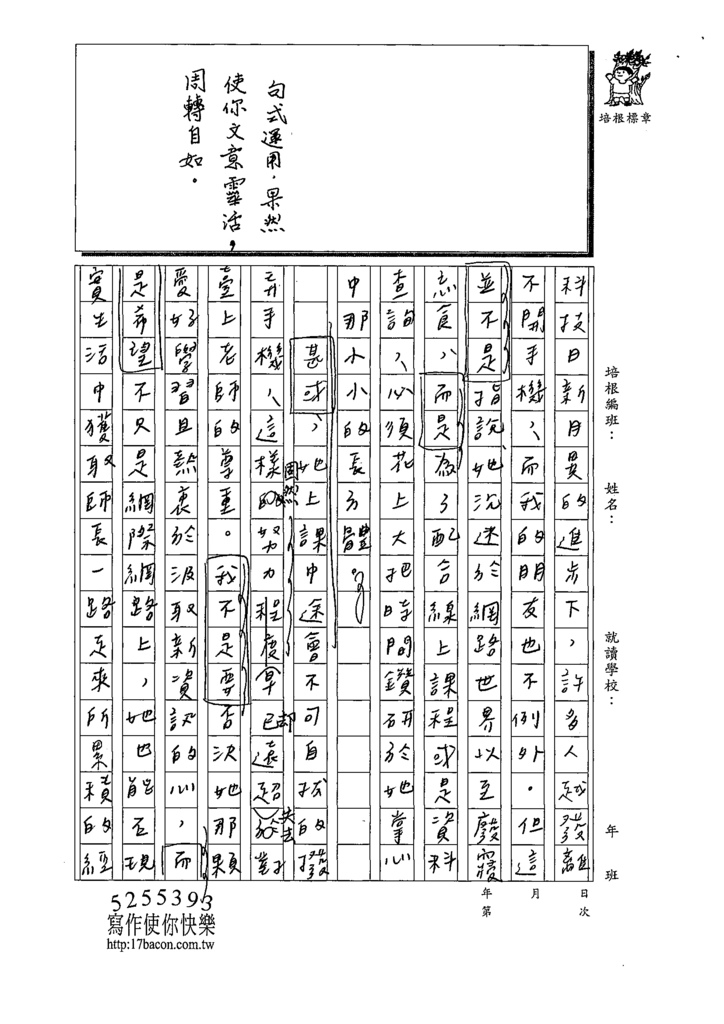 句式運用，果然
使你文章靈活，
周轉自如。
培根標章
培根編班：
姓名：
就讀學校：
年 班
年 月 日
第 次
科技日新月異的進步下，許多人越發離
不開手機，而我的朋友也不例外。但這
並不是指說她沉迷於網路世界以至廢寢
忘食，而是為了配合線上課程或是資料
查詢，必須花上大把時間鑽研於她掌心
中那小小的長方體。
甚或，她上課中途會不可自拔的撥
弄手機，這樣固然努力程度拿已卻遠超失去對
臺上老師的尊重。我不是要否決她那顆
愛好學習且熱衷於汲取新資訊的心，而
是希望不只是網際網路上，她也能否現
實生活中獲取師長一路走來所累積的經
5255393
寫作使你快樂
http:17bacon.com.tw